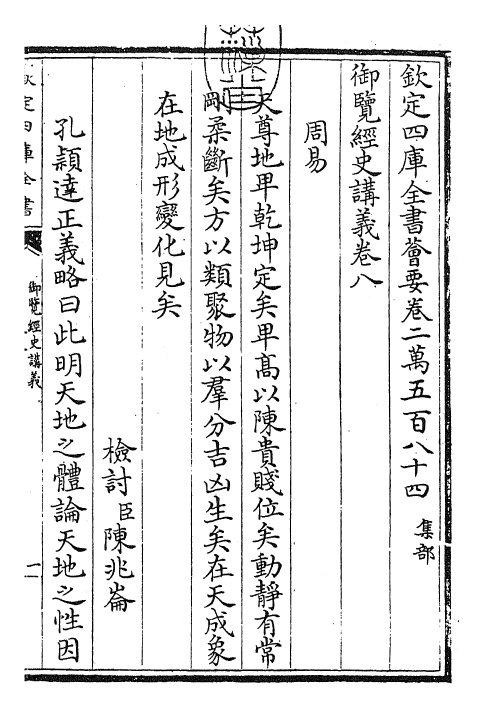 欽定四庫全書薈要卷二萬五百八十四 集部
御覽經史講義卷八
周易
天尊地卑乾坤定矣卑髙以陳貴賤位矣動靜有常
剛柔斷矣方以類聚物以羣分吉凶生矣在天成象
在地成形變化見矣
檢討臣陳兆崙
孔穎達正義略曰此明天地之體論天地之性因
欽定四庫全書
御覽經史講義
一